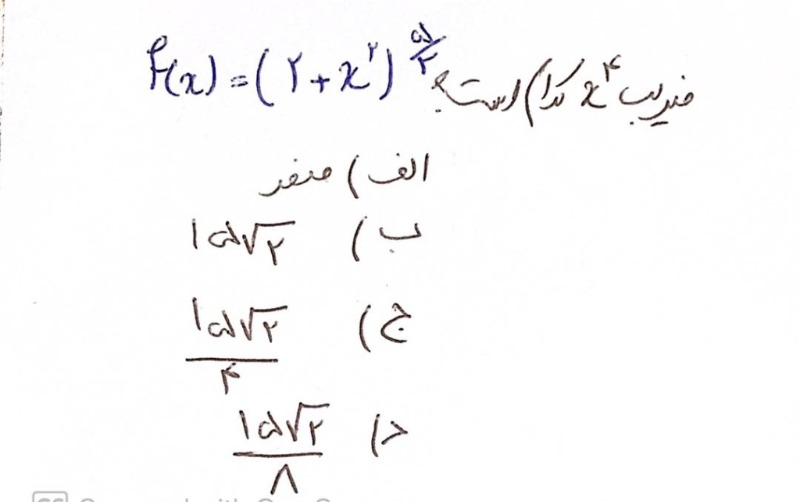 f(x) = (۲ + x^۲)^{۵/۲} ضریب x^۴ کدام است؟
الف) صفر
ب) ۱۵√۲
ج) ۱۵√۲/۴
د) ۱۵√۲/۸